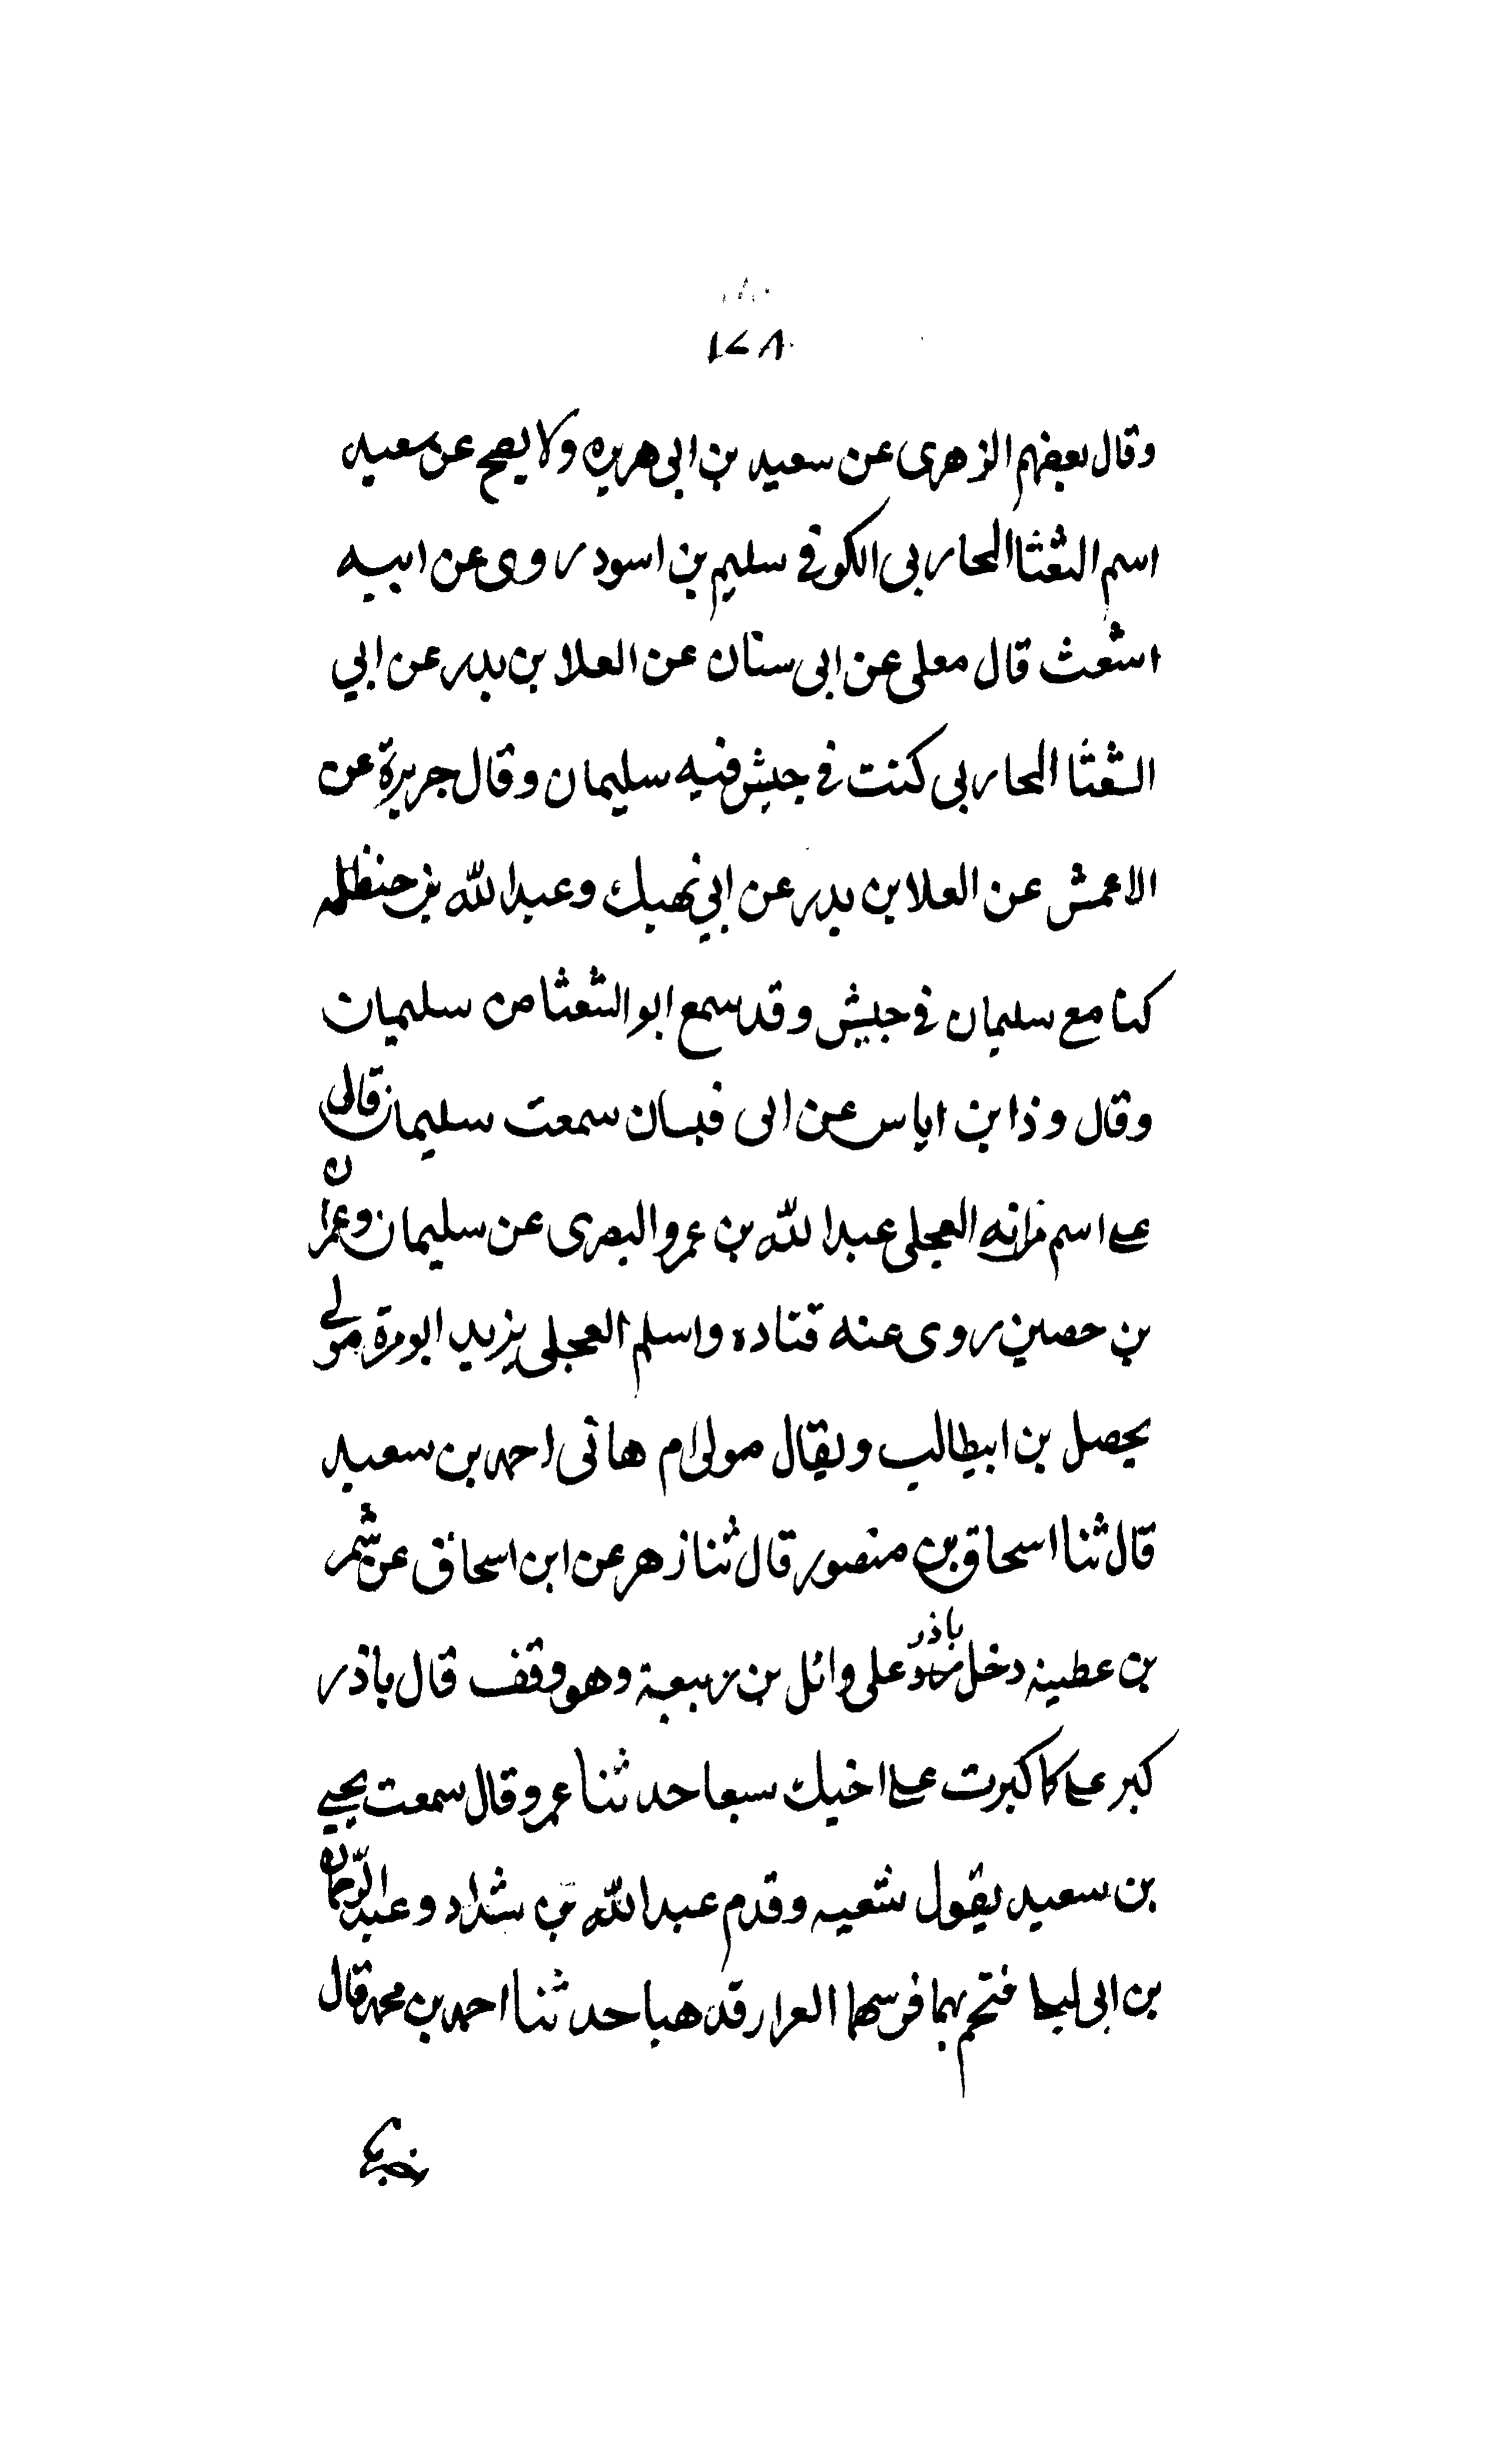 ١٧٨
وقال بعضهم الزهرى عن سعيد بن ابى هريره ولا يصح عن سعيد
اسم الشعثا المحاربى الكوفى سليم بن اسود روى عن ابيه
اشعث قال معلى عن ابى سنان عن العلا بن بدر عن ابي
الشعثا المحاربى كنت فى جيش فيه سليمان وقال جريرة عن
الاعمش عن العلا بن بدر عن ابي نهيك وعبدالله بن حنظله
كنا مع سليمان فى جيش وقد سمع ابو الشعثا من سليمان
وقال وذا بن اياس عن ابى فبسان سمعت سليمان قال
على اسم مرانه العجلى عبدالله بن عمرو البصرى عن سليمان وعمران
بن حصين روى عنه قتاده واسلم العجلى يزيد ابو مرة مولى
يحصل بن ابيطالب ويقال مولى ام هانى احمد بن سعيد
قال ثنا اسحاق بن منصور قال ثنا زهر عن ابن اسحاق عن شمر
بن عطيه دخل باذر على وائل بن ربيعة وهو وقف قال باذر
كبر على كما كبرت على اخيك سبعا حدثنا عمرو قال سمعت يحيى
بن سعيد يقول شعيه وقدم عبدالله بن شداد وعبدالرحمان
بن ابى ليلى فتحم بهما فرسهما العرار قد هبا حدثنا احمد بن محمد قال